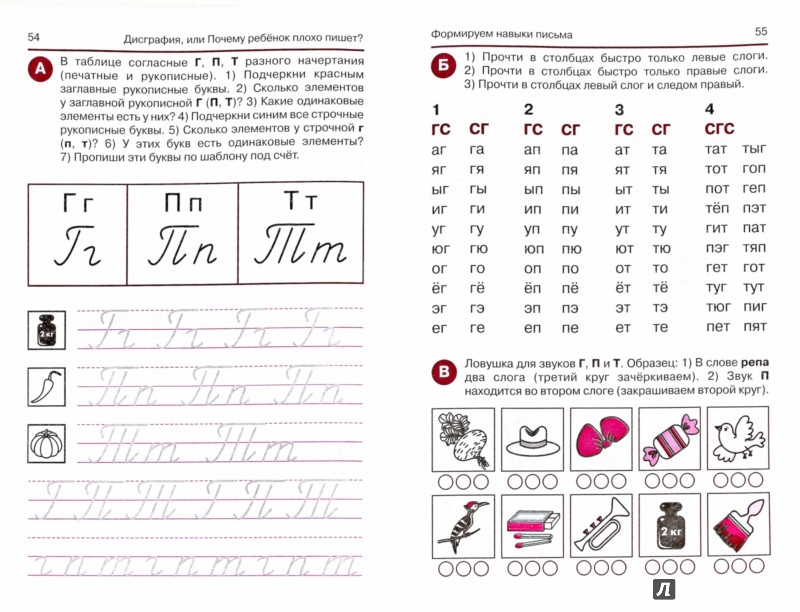 54
Дисграфия, или Почему ребёнок плохо пишет?
А
В таблице согласные Г, П, Т разного начертания
(печатные и рукописные). 1) Подчеркни красным
заглавные рукописные буквы. 2) Сколько элементов
у заглавной рукописной Г (П, Т)? 3) Какие одинаковые
элементы есть у них? 4) Подчеркни синим все строчные
рукописные буквы. 5) Сколько элементов у строчной г
(п, т)? 6) У этих букв есть одинаковые элементы?
7) Пропиши эти буквы по шаблону под счёт.
Г г П п Т т
Гг Пп Тт
2 кг
Гг Гг Гг Гг
Пп Пп Пп
Тт Тт
Г П Т Г П Т
г п т г п т г п т
Формируем навыки письма
55
Б
1) Прочти в столбцах быстро только левые слоги.
2) Прочти в столбцах быстро только правые слоги.
3) Прочти в столбцах левый слог и следом правый.
1 2 3 4
ГС СГ ГС СГ ГС СГ СГС
аг га ап па ат та тат тыг
яг гя яп пя ят тя тот гоп
ыг гы ып пы ыт ты пот геп
иг ги ип пи ит ти тёп пэт
уг гу уп пу ут ту гит пат
юг гю юп пю ют тю пэг тяп
ог го оп по от то гет гот
ёг гё ёп пё ёт тё туг тут
эг гэ эп пэ эт тэ тюг пиг
ег ге еп пе ет те пет пят
В
Ловушка для звуков Г, П и Т. Образец: 1) В слове репа
два слога (третий круг зачёркиваем). 2) Звук П
находится во втором слоге (закрашиваем второй круг).
2 кг
Л